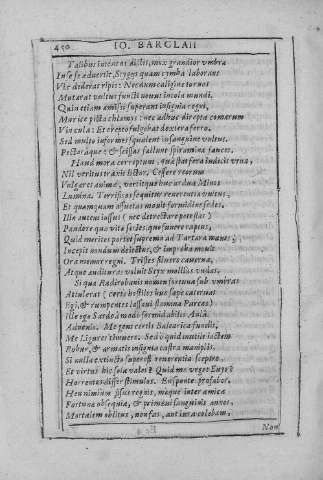 450 IO. BARCLAII
Talibus intentos dictis, mox grandior umbra
In se se advertit, Stygys quam cymba laborans
Vix dederat ripis: Necdum caligine torvos
Mutarat vultus functi novus incola mundi.
Quin etiam amissi superant insignia regni,
Murice picta chlamys: nec adhuc direpta comarum
Vincula: Et erepto fulgebat dextera ferro.
Sed multo informes squalent in sanguine vultus,
Pectoraque: & scissas fallunt spiramina fauces,
Haud mora correptum, quæ stat fera iudicis urna,
Nil veritus traxit lictor. Cessere reorum
Vulgares animæ, vertitque huc ardua Minos
Lumina. Terrificas sequitur reverentia vultus,
Et quamquam assuetas movit formidine sedes.
Ille autem iussus (nec detrectare potestas)
Pandere quo vitæ scitas, quo funere raptus,
Quid meritus portet supremo ad Tartara manes;
Incepit nondum delectus, & improba movit
Ora memor regni. Tristes siluere caterva,
Atque auditurus volvit Styx mollius undas.
Si qua Radirobanis nomen fortuna sub umbras
Attulerat (certe hostiles huc sæpe catervas
Egi, & rumpentes lassavi stamina Parcas)
Ille ego Sardoâ modo formidabilis Aulâ
Advenio. Me gens certis Balearica fundis,
Me Ligures timuere. Sed quid inutile iactem
Robur, & armatis insignia castra maniplis.
Si nulla extincto superest reverentia sceptro,
Et virtus hic sola valet? Quid me reges
Horrentes differ stimulos. En sponte profabor,
Heu nimium fisus regnis, meque inter amica
Fortunæ obsequia, & primævi sanguinis annos,
Mortalem oblitus, non fas, aut iura colebam,
Non